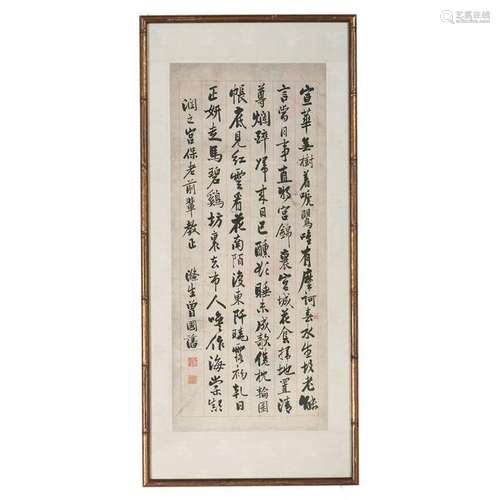 宣華無樹着啼鶯唯有摩訶春水生故老能
言當日事直將宮錦裹宮城花陰掃地置清
尊爛醉歸來日已醺欲睡未成欹倦枕輪囷
帳底見紅雲看花南陌復東阡曉露初乾日
正妍走馬碧鷄坊裏去市人喚作海棠顛
潤之宮保老前輩教正
滌生曾國藩